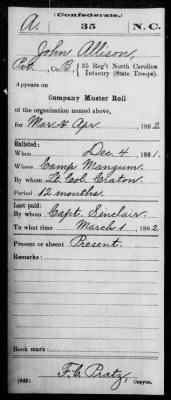 (Confederate.)
A. 35 N.C.
John Allison,
Pvt., Co. B, 35 Reg't North Carolina
Infantry (State Troops).
Appears on
Company Muster Roll
of the organization named above,
for Mar & Apr, 1862.
Enlisted:
When Dec 4, 1861.
Where Camp Mangum.
By whom Lt. Col. Craton.
Period 12 months.
Last paid:
By whom Capt. Sinclair.
To what time March 1, 1862.
Present or absent Present.
Remarks:
Book mark:
(642) F.C. Pratz, Copyist.